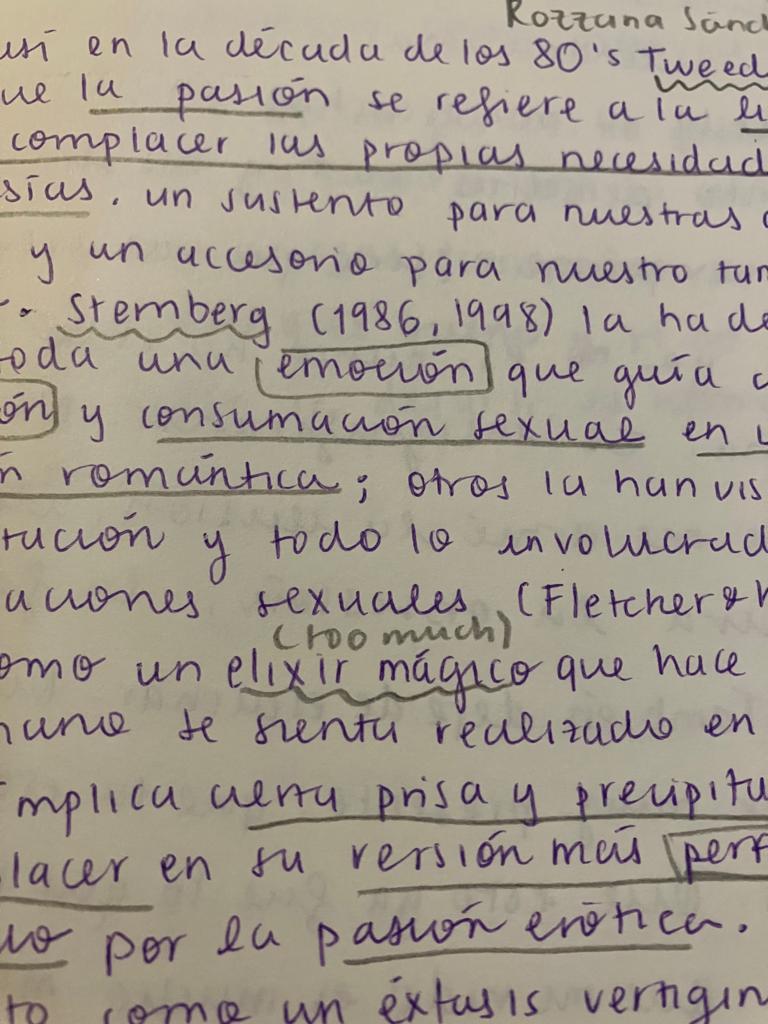 Rozzana Sánc
así en la década de los 80's Tweed
ue la pasión se refiere a la
complacer las propias necesidad
sías. un sustento para nuestras
y un accesorio para nuestro
r. Sternberg (1986, 1998) la ha de
oda una emoción que guía
ón y consumación sexual en
n romántica; otros la han vis
tución y todo lo involucrad
aciones sexuales (Fletcher &
(too much)
omo un elixir mágico que hace
mano se sienta realizado en
Implica cierta prisa y precipita
lacer en su versión más perf
por la pasión erótica.
to como un éxtasis vertigin